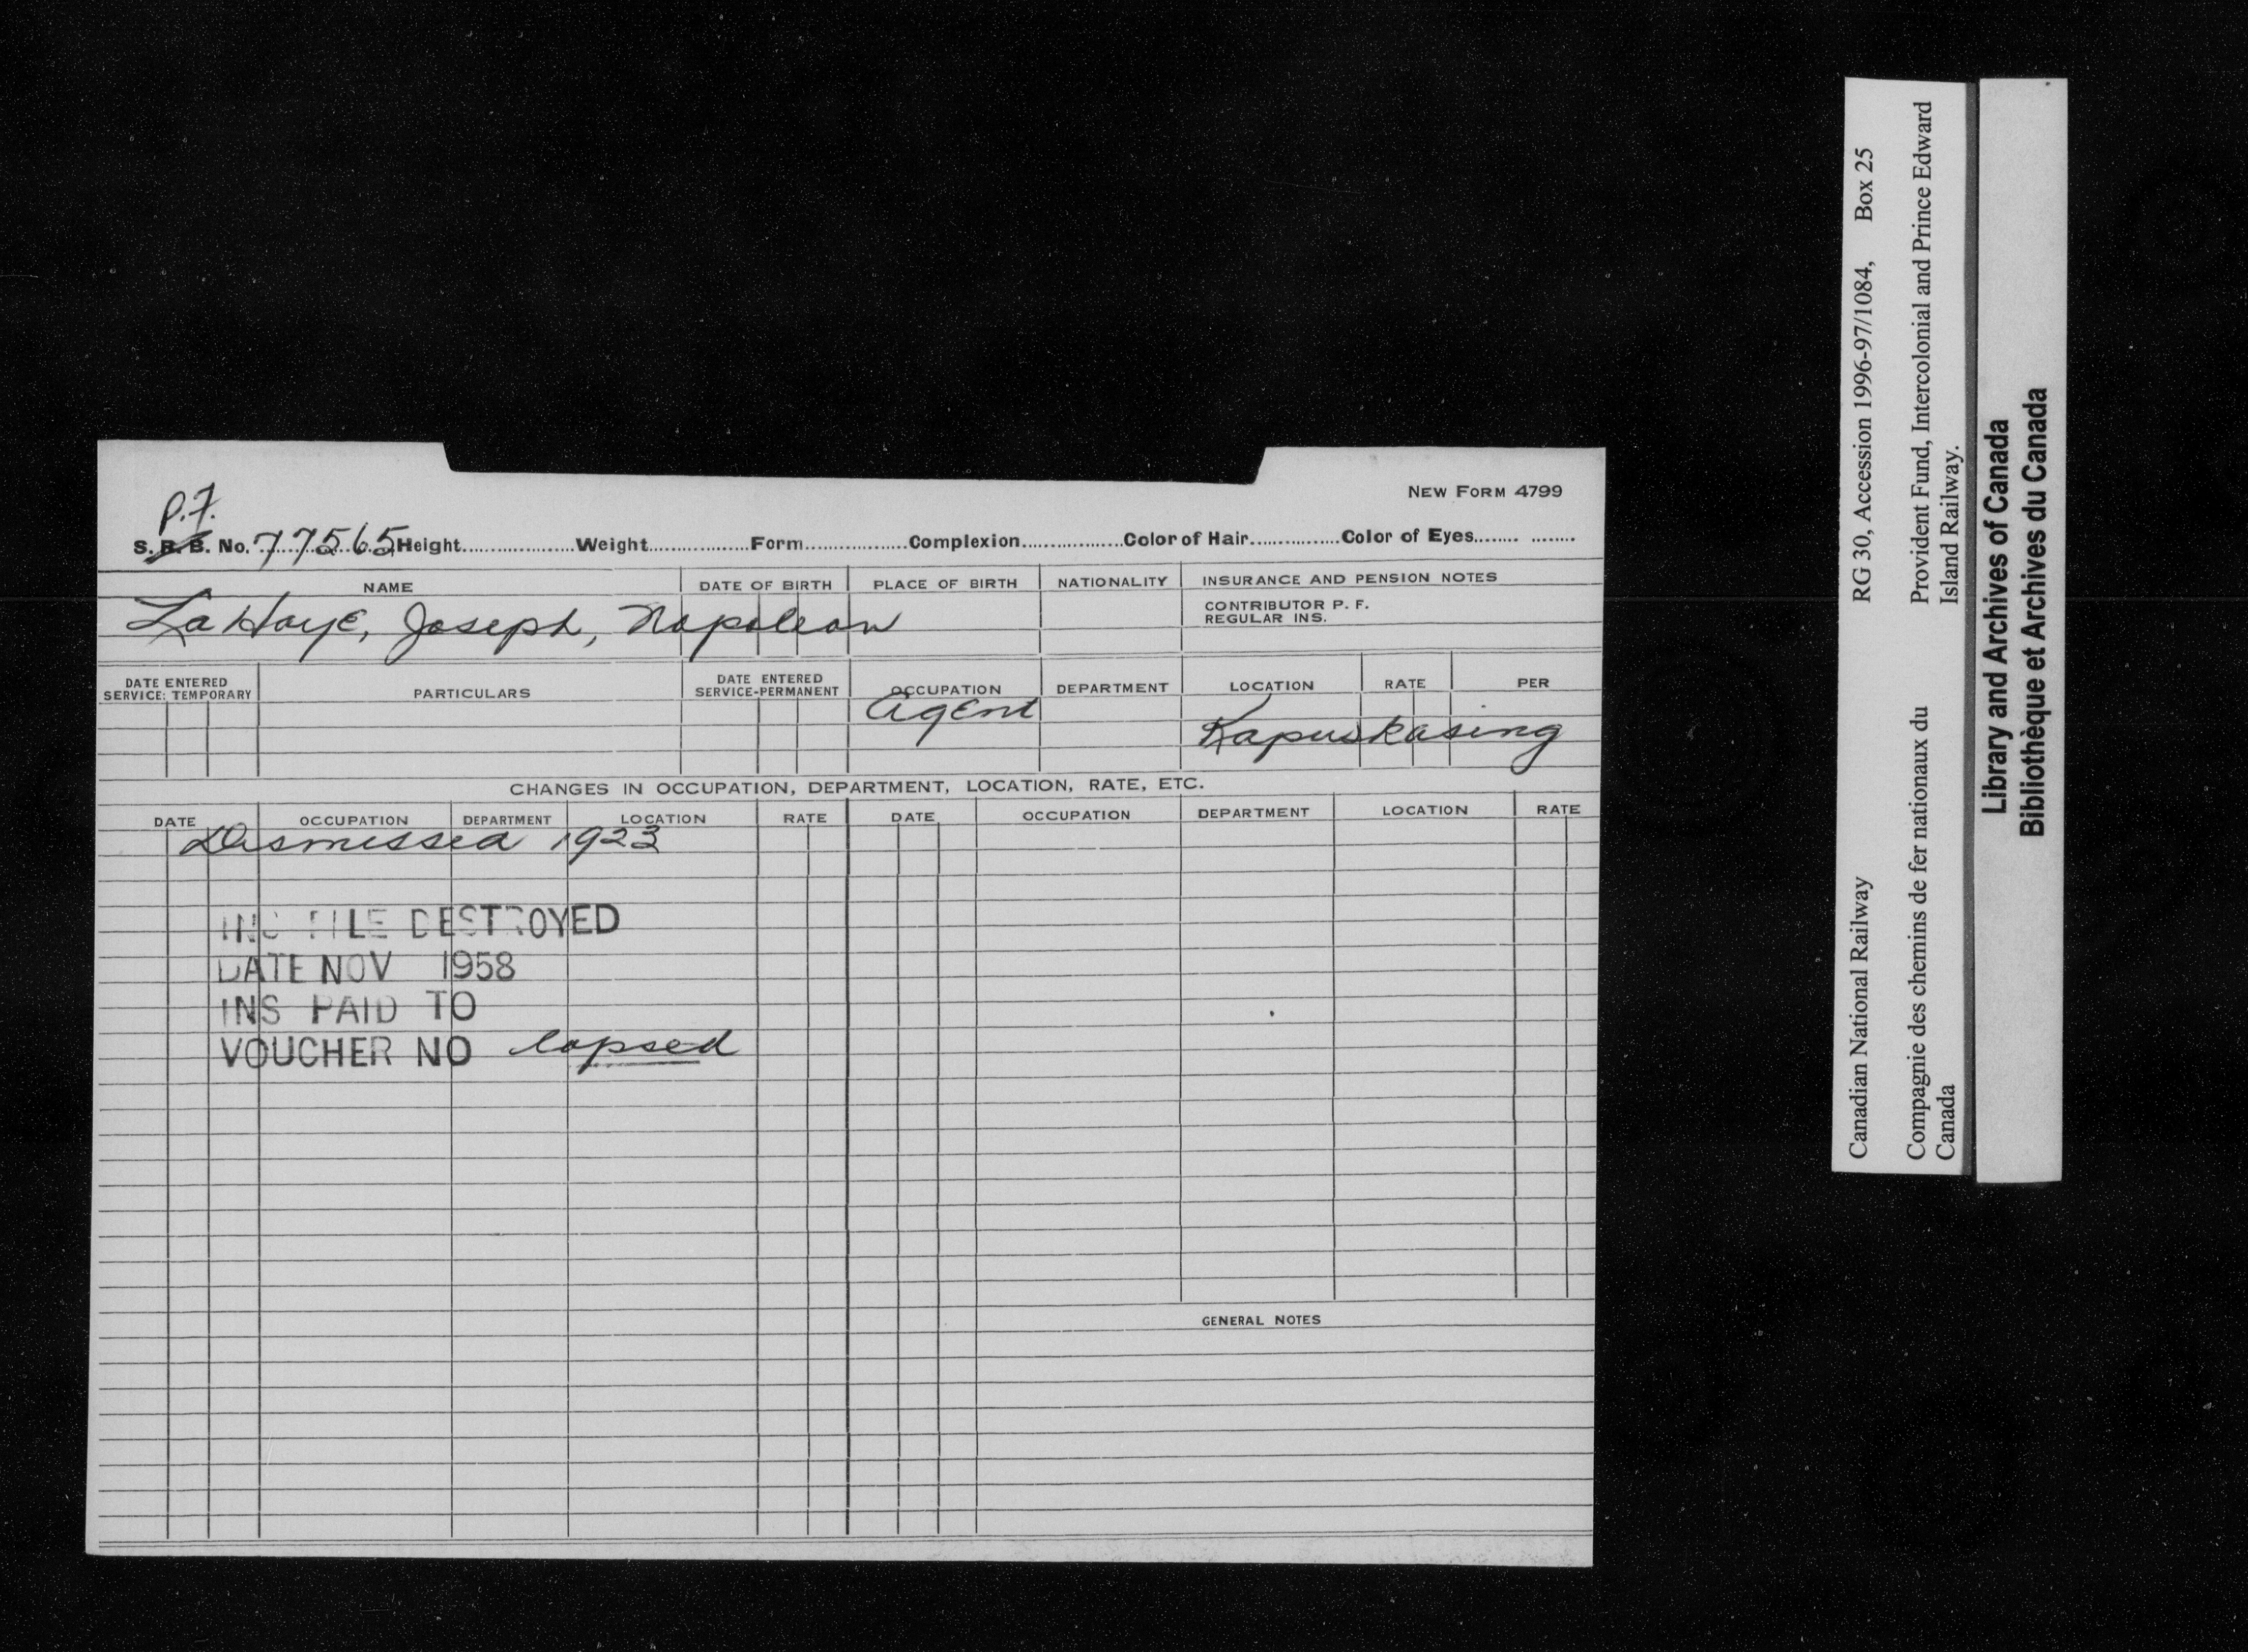 NEW FORM 4799
P.F.
S. R. B. No. 77565 Height Weight Form Complexion Color of Hair Color of Eyes
NAME DATE OF BIRTH PLACE OF BIRTH NATIONALITY INSURANCE AND PENSION NOTES
CONTRIBUTOR P. F.
REGULAR INS.
LaHaye, Joseph, Napoleon
DATE ENTERED SERVICE: TEMPORARY PARTICULARS DATE ENTERED SERVICE-PERMANENT OCCUPATION DEPARTMENT LOCATION RATE PER
Agent
Kapuskasing
CHANGES IN OCCUPATION, DEPARTMENT, LOCATION, RATE, ETC.
DATE OCCUPATION DEPARTMENT LOCATION RATE DATE OCCUPATION DEPARTMENT LOCATION RATE
Dismissed 1923
INS FILE DESTROYED
DATE NOV 1958
INS PAID TO
VOUCHER NO lapsed
GENERAL NOTES
Canadian National Railway RG 30, Accession 1996-97/1084, Box 25
Compagnie des chemins de fer nationaux du
Canada
Provident Fund, Intercolonial and Prince Edward
Island Railway.
Library and Archives of Canada
Bibliothèque et Archives du Canada